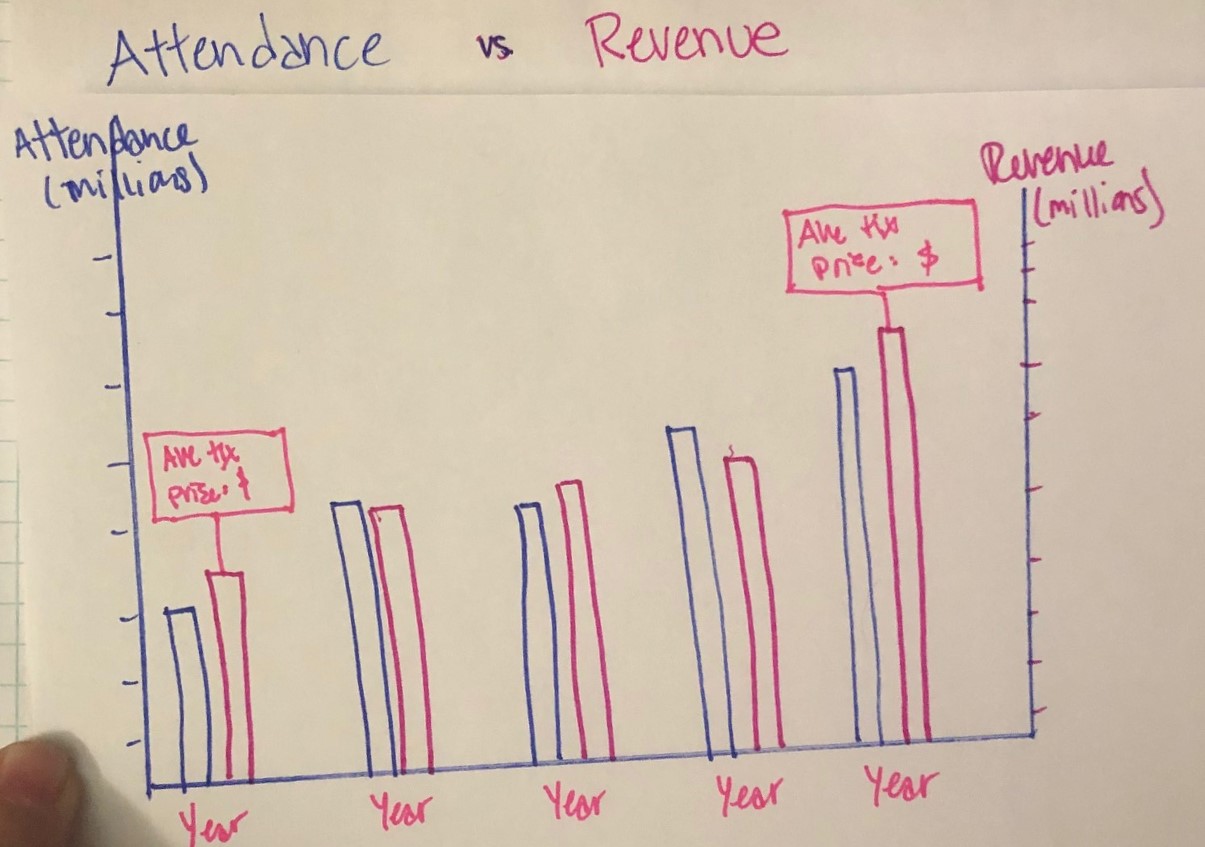 Attendance vs. Revenue
Attendance
(millions)
Revenue
(millions)
Ave tix
price: $
Ave tix
price: $
Year Year Year Year Year